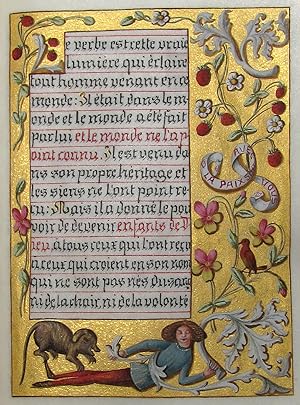 Le verbe est cette vraie
lumière qui éclaire
tout homme venant en ce
monde: Il était dans le mon
de et le monde a été fait
par lui et le monde ne l'a p
oint connu. Il est venu da
ns son propre héritage et
les siens ne l'ont point re
çu: Mais il a donné le pou
voir de devenir enfants de D
ieu, à tous ceux qui l'ont reçu
à ceux qui croient en son nom
qui ne sont pas nés du sang
ni de la chair, ni de la volonté
LA PAIX AVEC VOUS